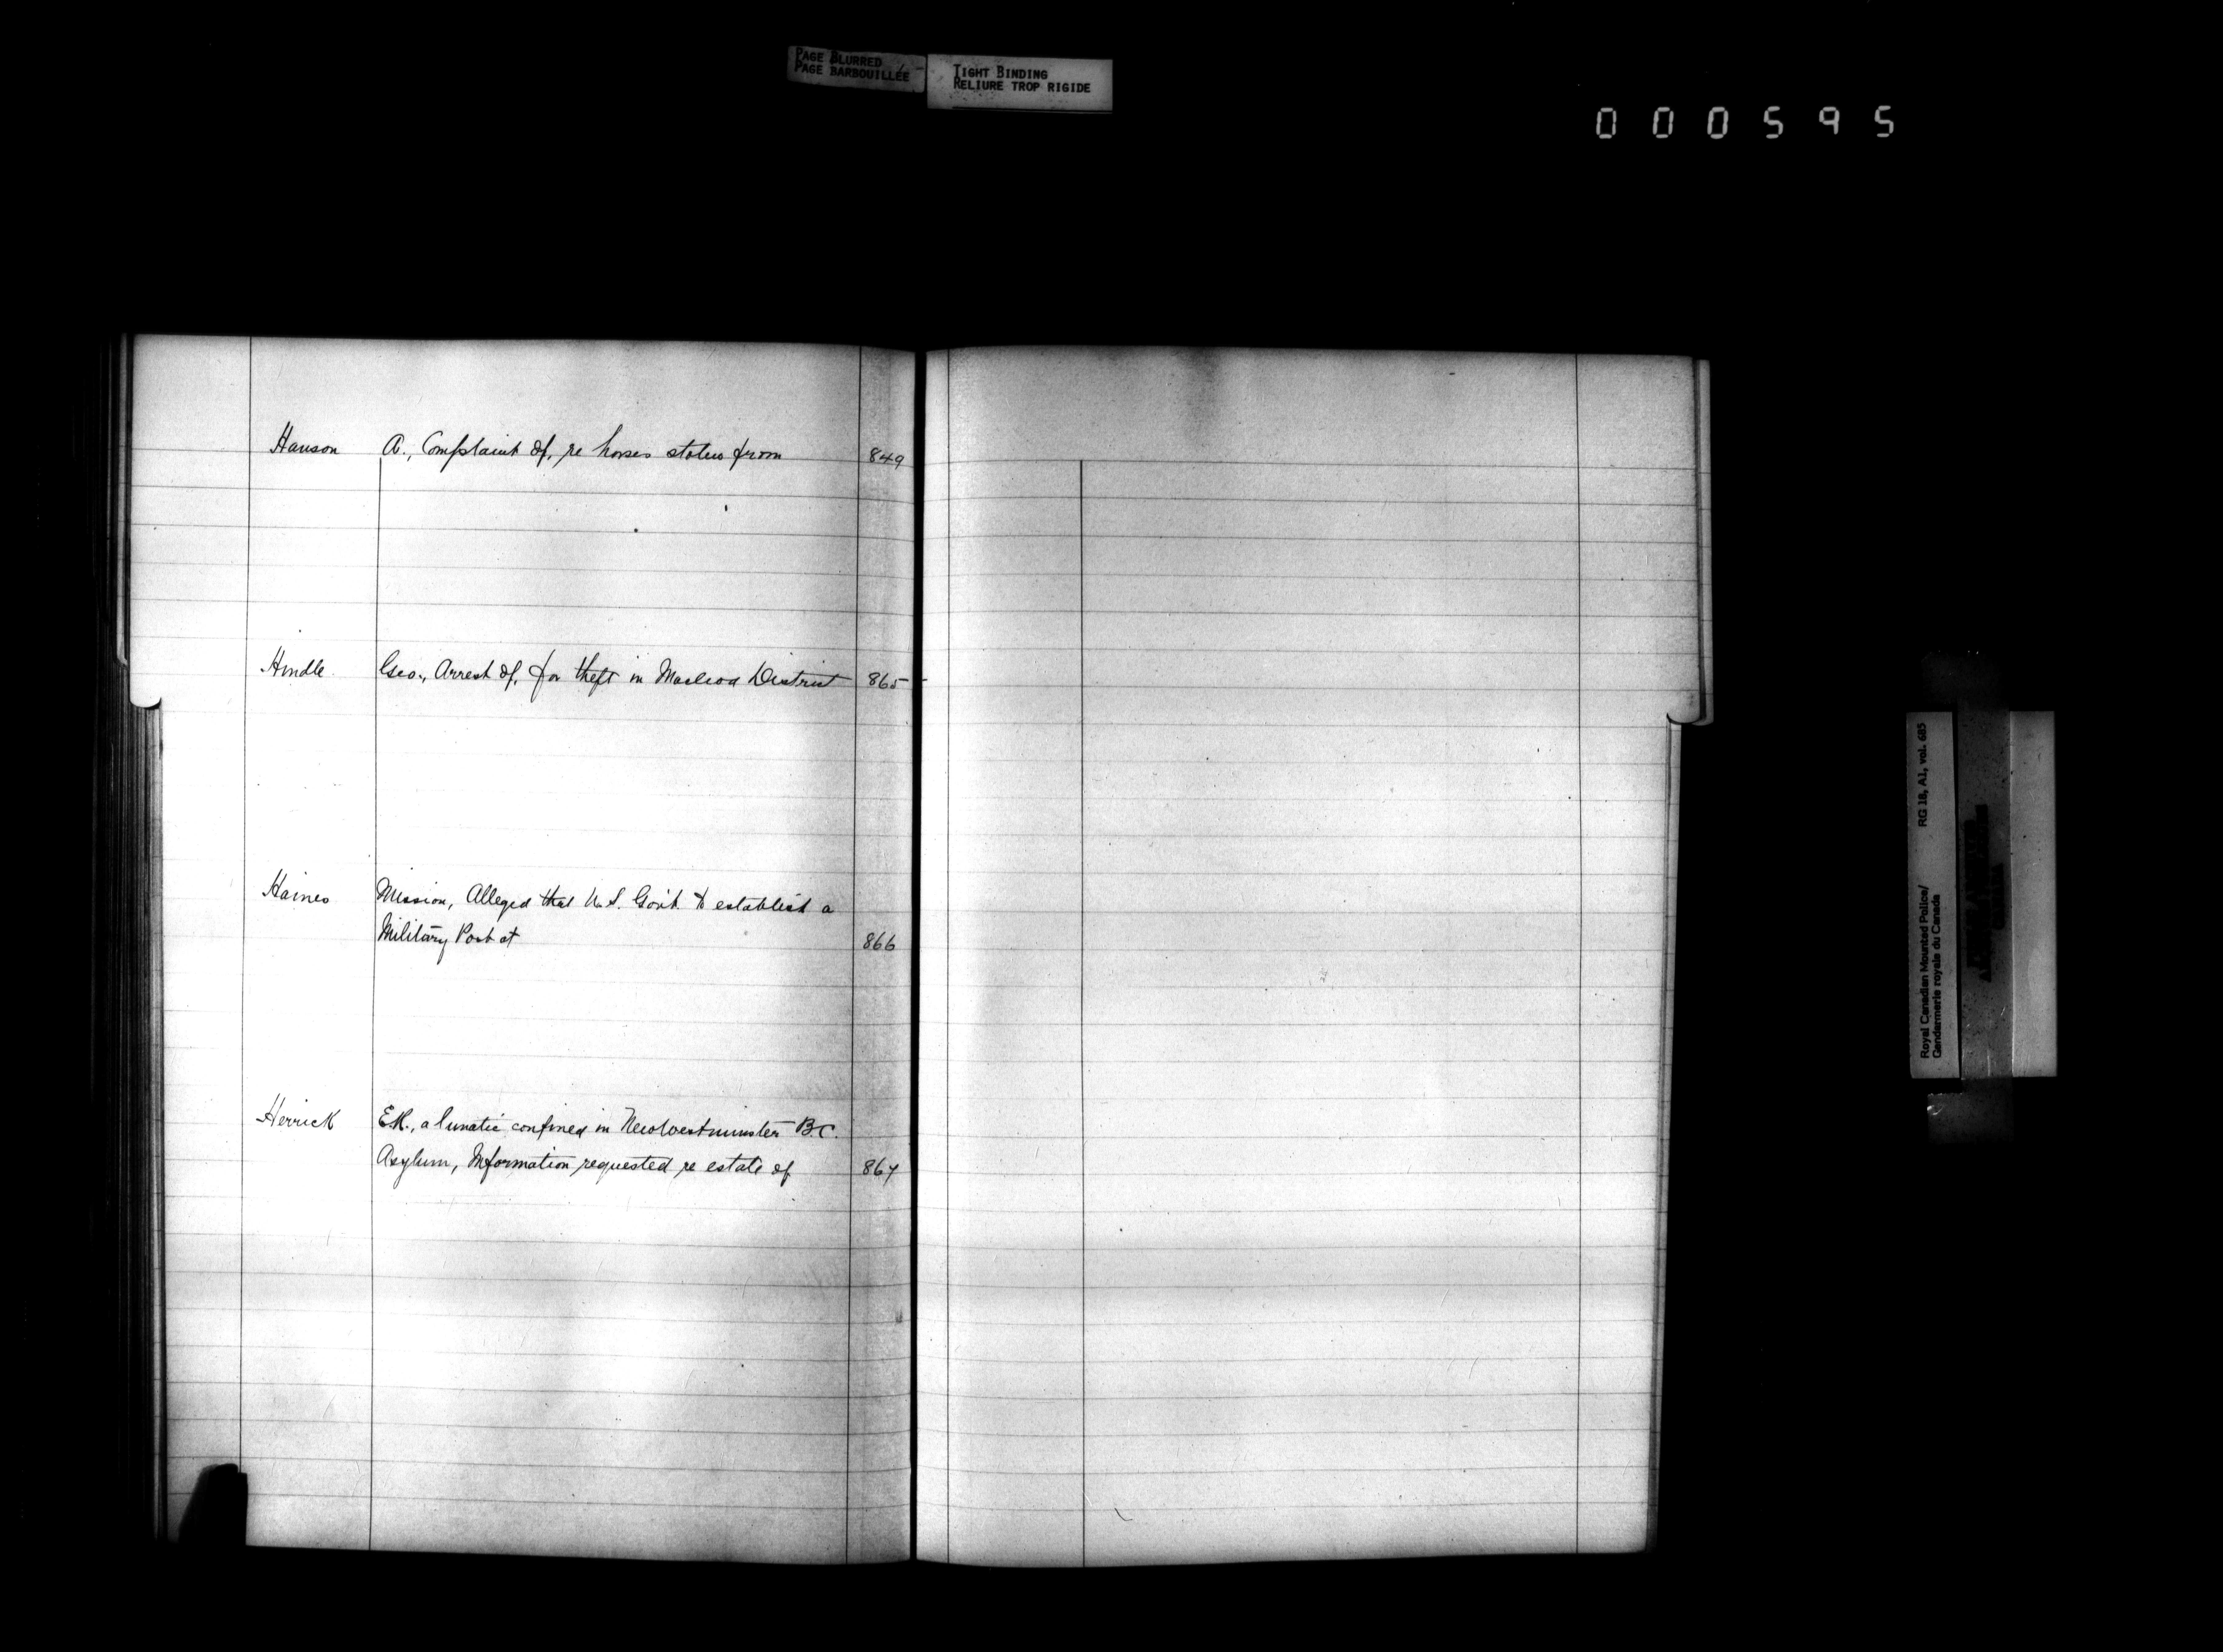 PAGE BLURRED
PAGE BARBOUILLÉE
TIGHT BINDING
RELIURE TROP RIGIDE
000595
Hanson A., Complaint of, re horses stolen from 849
Hindle Geo., Arrest of, for theft in Macleod District 865
Haines Mission, Alleged that U.S. Gov't. to establish a
Military Post at 866
Herrick E.H., a lunatic confined in New Westminster B.C.
Asylum, Information requested re estate of 867
Royal Canadian Mounted Police/ RG 18, A1, vol. 685
Gendarmerie royale du Canada